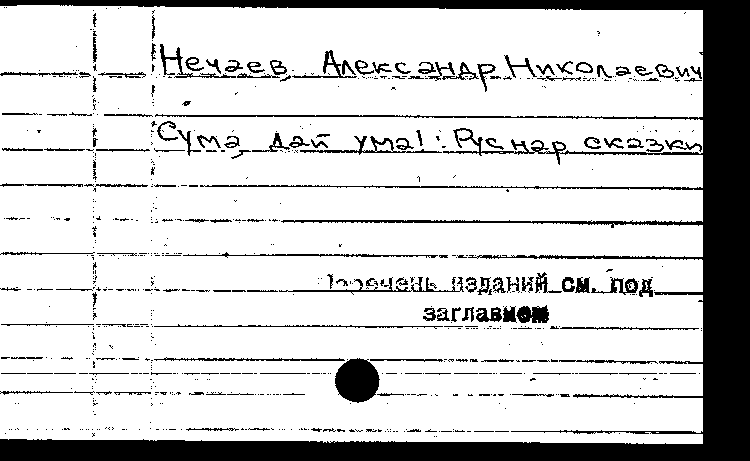 Нечаев, Александр Николаевич
Сума, дай ума! : Рус нар сказки
Перечень изданий см. под
заглавием